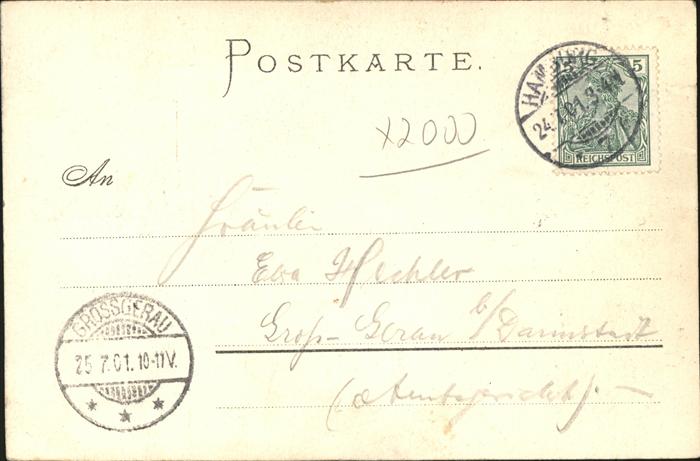 POSTKARTE.
HAMBURG
24.7.01.3-4N
5
REICHSPOST
x2000
An
Fräulein
Eva Wechler
Groß-Gerau b/Darmstadt
(Amtsgericht).—
GROSSGERAU
25.7.01.10-11V.